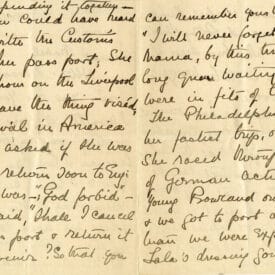 pending it together —
could have heard
with the Customs
her pass port, She
hour on the Liverpool
have this thing visé,
val in America
asked if she was
return soon to Eng:
was — "God forbid" —
aid, "Shall I cancel
port & return it
? So that you
can remember
"I will never forget
Mama, by this tim
long
were in fits of
The Philadelphi
her fastest trips,
She raced throug
of German acti
Young Rowland
& we got to port a
than we were exp
Lala's dressing gow